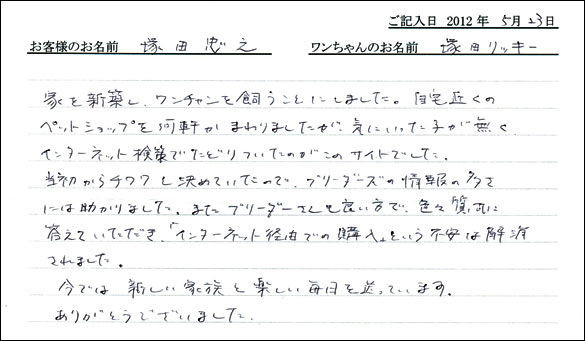 ご記入日 2012年 5月23日
お客様のお名前 塚田忠之 ワンちゃんのお名前 塚田リッキー
家を新築し、ワンチャンを飼うことにしました。自宅近くの
ペットショップを何軒かまわりましたが、気にいった子が無く、
インターネット検策でたどりついたのがこのサイトでした。
当初からチワワと決めていたので、ブリーダーズの情報の多さ
には助かりました。またブリーダーさんも良い方で、色々質問に
答えていただき、「インターネット経由での購入」という不安は解消
されました。
今では新しい家族と楽しい毎日を送っています。
ありがとうございました。